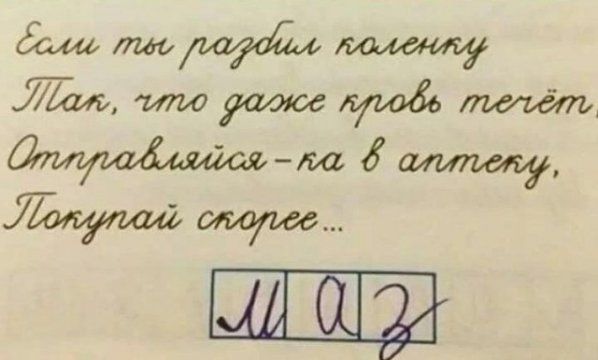 Если ты разбил коленку
Так, что даже кровь течёт,
Отправляйся-ка в аптеку,
Покупай скорее...
маз